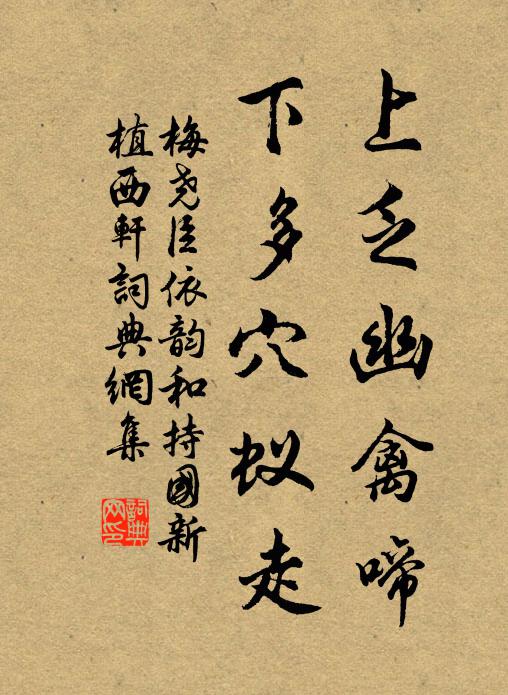 上乏幽禽啼
下多穴蚁走
梅尧臣依韵和持國新
植西軒詞典網集
詞典
网印